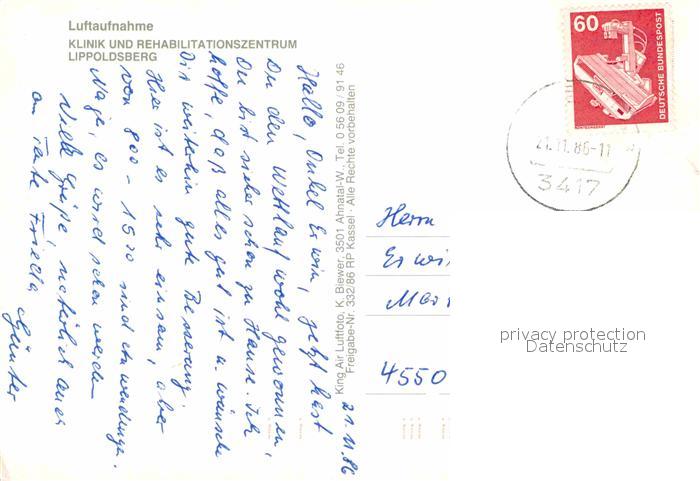 Luftaufnahme
KLINIK UND REHABILITATIONSZENTRUM
LIPPOLDSBERG
21.11.86
Hallo, Onkel Erwin, jetzt hast
Du den Wettlauf wohl gewonnen,
Du bist sicher schon zu Hause. Ich
hoffe, daß alles gut ist u. wünsche
Dir weiterhin gute Besserung.
Hier ist es sehr einsam, aber
von 800 - 1530 sind Anwendungen.
Naja, es wird schon werden
Viele Grüße, natürlich auch
an Tante Frieda
Günter
King Air Luftfoto, K. Biewer, 3501 Ahnatal-W., Tel. 0 56 09 / 91 46
Freigabe-Nr. 332/86 RP Kassel · Alle Rechte vorbehalten
60
DEUTSCHE BUNDESPOST
21.11.86-11
3417
Herrn
Erwi
4550
privacy protection
Datenschutz